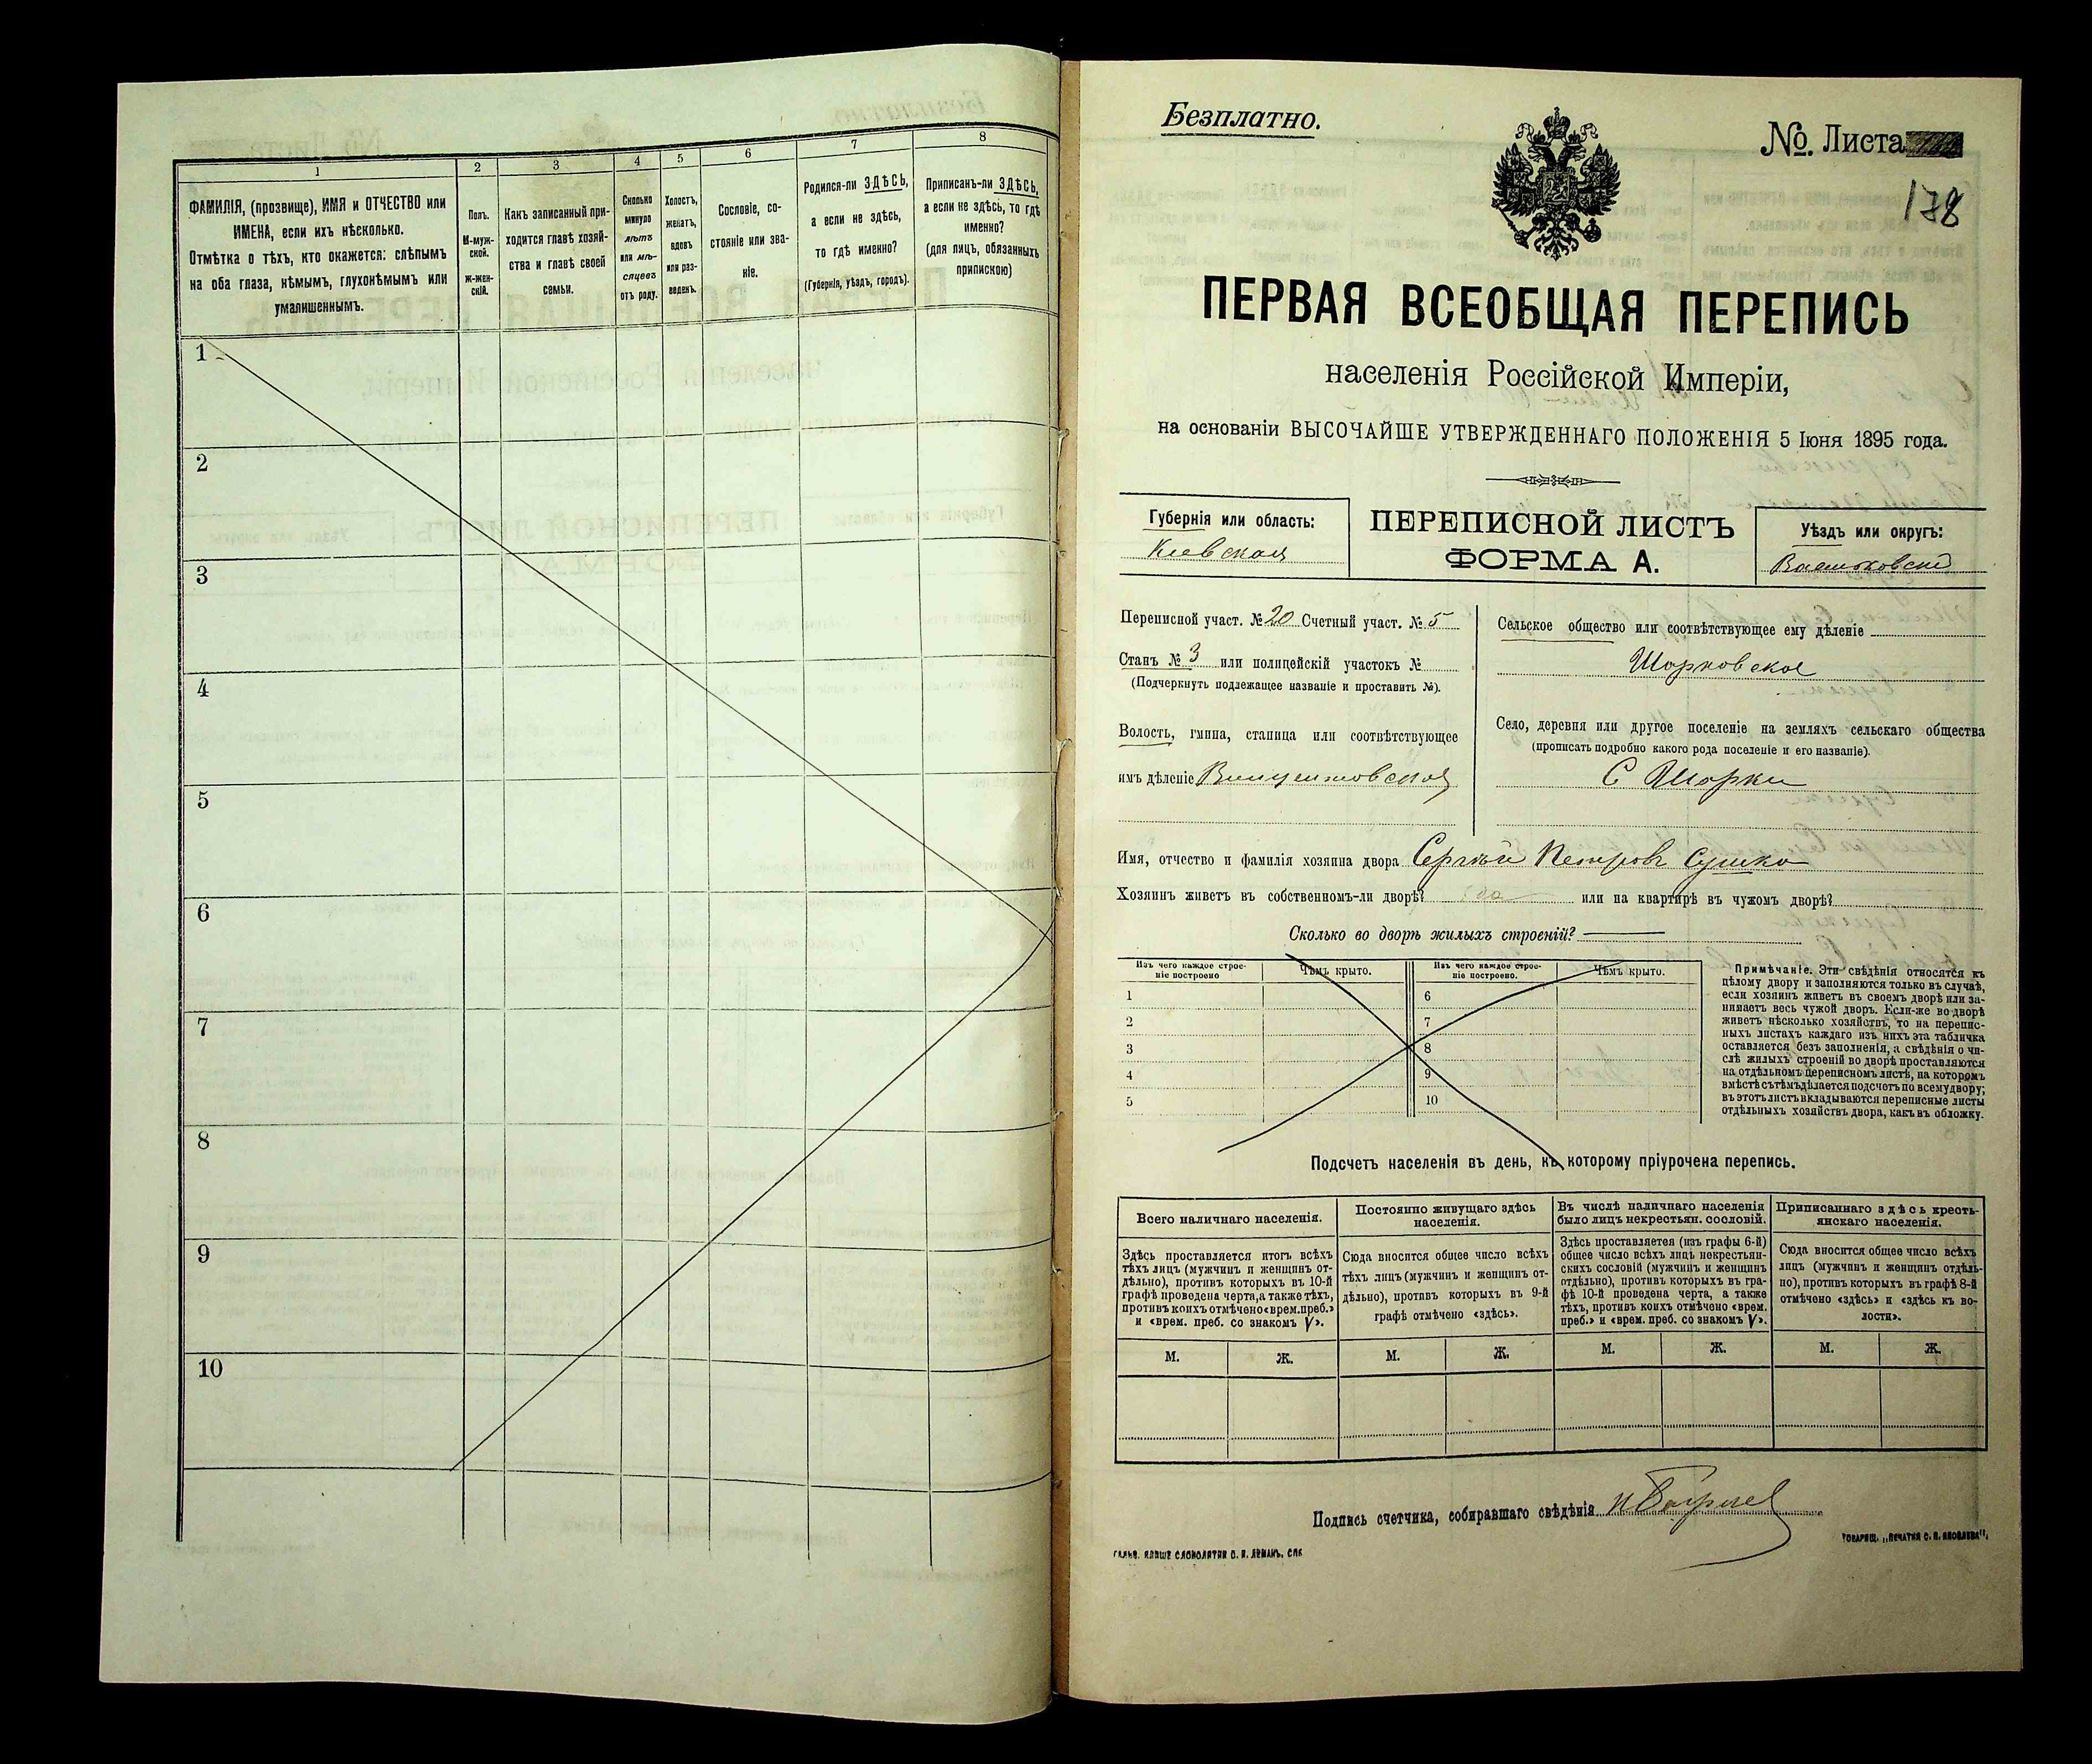 1
2
3
4
5
6
7
8
ФАМИЛІЯ, (прозвище), ИМЯ и ОТЧЕСТВО или
ИМЕНА, если ихъ нѣсколько.
Отмѣтка о тѣхъ, кто окажется: слѣпымъ
на оба глаза, нѣмымъ, глухонѣмымъ или
умалишеннымъ.
Полъ.
М-муж-
ской.
Ж-жен-
скій.
Какъ записанный при-
ходится главѣ хозяй-
ства и главѣ своей
семьи.
Сколько
минуло
лѣтъ
или мѣ-
сяцевъ
отъ роду.
Холостъ,
женатъ,
вдовъ
или раз-
веденъ.
Сословіе, со-
стояніе или зва-
ніе.
Родился-ли ЗДѢСЬ,
а если не здѣсь,
то гдѣ именно?
(Губернія, уѣздъ, городъ).
Приписанъ-ли ЗДѢСЬ,
а если не здѣсь, то гдѣ
именно?
(для лицъ, обязанныхъ
припискою)
1
2
3
4
5
6
7
8
9
10
Безплатно.
№. Листа
178
ПЕРВАЯ ВСЕОБЩАЯ ПЕРЕПИСЬ
населенія Россійской Имперіи,
на основаніи ВЫСОЧАЙШЕ УТВЕРЖДЕННАГО ПОЛОЖЕНІЯ 5 Іюня 1895 года.
Губернія или область:
Кіевская
ПЕРЕПИСНОЙ ЛИСТЪ
ФОРМА А.
Уѣздъ или округъ:
Васильковскій
Переписной участ. № 20 Счетный участ. № 5
Станъ № 3 или полицейскій участокъ №
(Подчеркнуть подлежащее названіе и проставить №).
Волость, гмина, станица или соотвѣтствующее
имъ дѣленіе Винцентовская
Сельское общество или соотвѣтствующее ему дѣленіе
Шарковское
Село, деревня или другое поселеніе на земляхъ сельскаго общества
(прописать подробно какого рода поселеніе и его названіе).
С Шарки
Имя, отчество и фамилія хозяина двора Сергѣй Петровъ Сушко
Хозяинъ живетъ въ собственномъ-ли дворѣ? да или на квартирѣ въ чужомъ дворѣ?
Сколько во дворѣ жилыхъ строеній?
Изъ чего каждое строе-
ніе построено
Чѣмъ крыто.
Изъ чего каждое строе-
ніе построено.
Чѣмъ крыто.
1
2
3
4
5
6
7
8
9
10
Примѣчаніе. Эти свѣдѣнія относятся къ
цѣлому двору и заполняются только въ случаѣ,
если хозяинъ живетъ въ своемъ дворѣ или за-
нимаетъ весь чужой дворъ. Если-же во дворѣ
живетъ нѣсколько хозяйствъ, то на перепис-
ныхъ листахъ каждаго изъ нихъ эта табличка
оставляется безъ заполненія, а свѣдѣнія о чи-
слѣ жилыхъ строеній во дворѣ проставляются
на отдѣльномъ переписномъ листѣ, на которомъ
вмѣстѣ съ тѣмъ дѣлается подсчетъ по всему двору;
въ этотъ листъ вкладываются переписные листы
отдѣльныхъ хозяйствъ двора, какъ въ обложку.
Подсчетъ населенія въ день, къ которому пріурочена перепись.
Всего наличнаго населенія.
Постоянно живущаго здѣсь
населенія.
Въ числѣ наличнаго населенія
было лицъ некрестьян. сословій.
Приписаннаго здѣсь кресть-
янскаго населенія.
Здѣсь проставляется итогъ всѣхъ
тѣхъ лицъ (мужчинъ и женщинъ от-
дѣльно), противъ которыхъ въ 10-й
графѣ проведена черта, а также тѣхъ,
противъ коихъ отмѣчено «врем. преб.»
и «врем. преб. со знакомъ V».
Сюда вносится общее число всѣхъ
тѣхъ лицъ (мужчинъ и женщинъ от-
дѣльно), противъ которыхъ въ 9-й
графѣ отмѣчено «здѣсь».
Здѣсь проставляется (изъ графы 6-й)
общее число всѣхъ лицъ некрестьян-
скихъ сословій (мужчинъ и женщинъ
отдѣльно), противъ которыхъ въ гра-
фѣ 10-й проведена черта, а также
тѣхъ, противъ коихъ отмѣчено «врем.
преб.» и «врем. преб. со знакомъ V».
Сюда вносится общее число всѣхъ
лицъ (мужчинъ и женщинъ отдѣль-
но), противъ которыхъ въ графѣ 8-й
отмѣчено «здѣсь» и «здѣсь къ во-
лости».
М.
Ж.
М.
Ж.
М.
Ж.
М.
Ж.
Подпись счетчика, собиравшаго свѣдѣнія
ГАЛЬВ. КЛИШЕ СЛОВОЛИТНИ О. И. ЛЕМАНЪ, СПБ
ТОВАРИЩ. „ПЕЧАТНЯ С. П. ЯКОВЛЕВА",